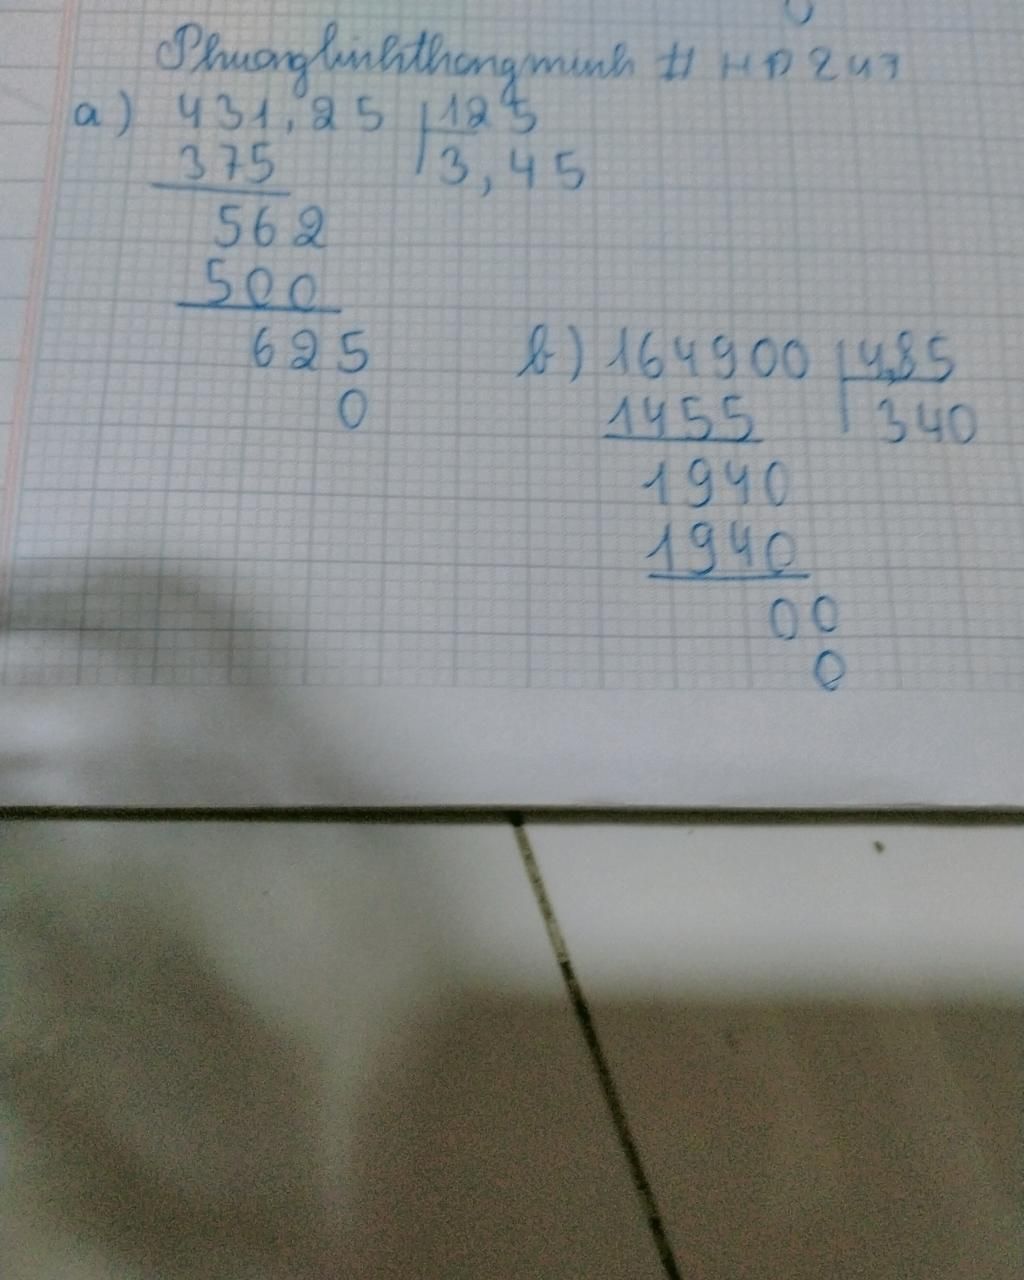 Phuonglinhthongminh # HD247
a) 431,25 | 125
375 | 3,45
562
500
625
0
b) 164900 | 4,85
1455 | 340
1940
1940
00
0